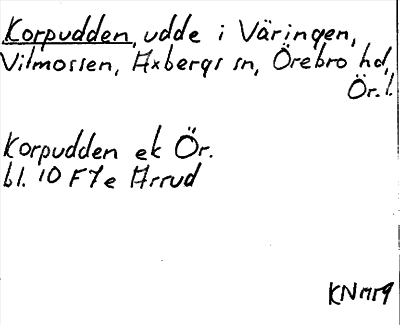 Korpudden, udde i Väringen,
Vilmossen, Axbergs sn, Örebro hd,
Ör. l.
Korpudden ek Ör.
bl. 10 F 7e Arrud
KNmr9